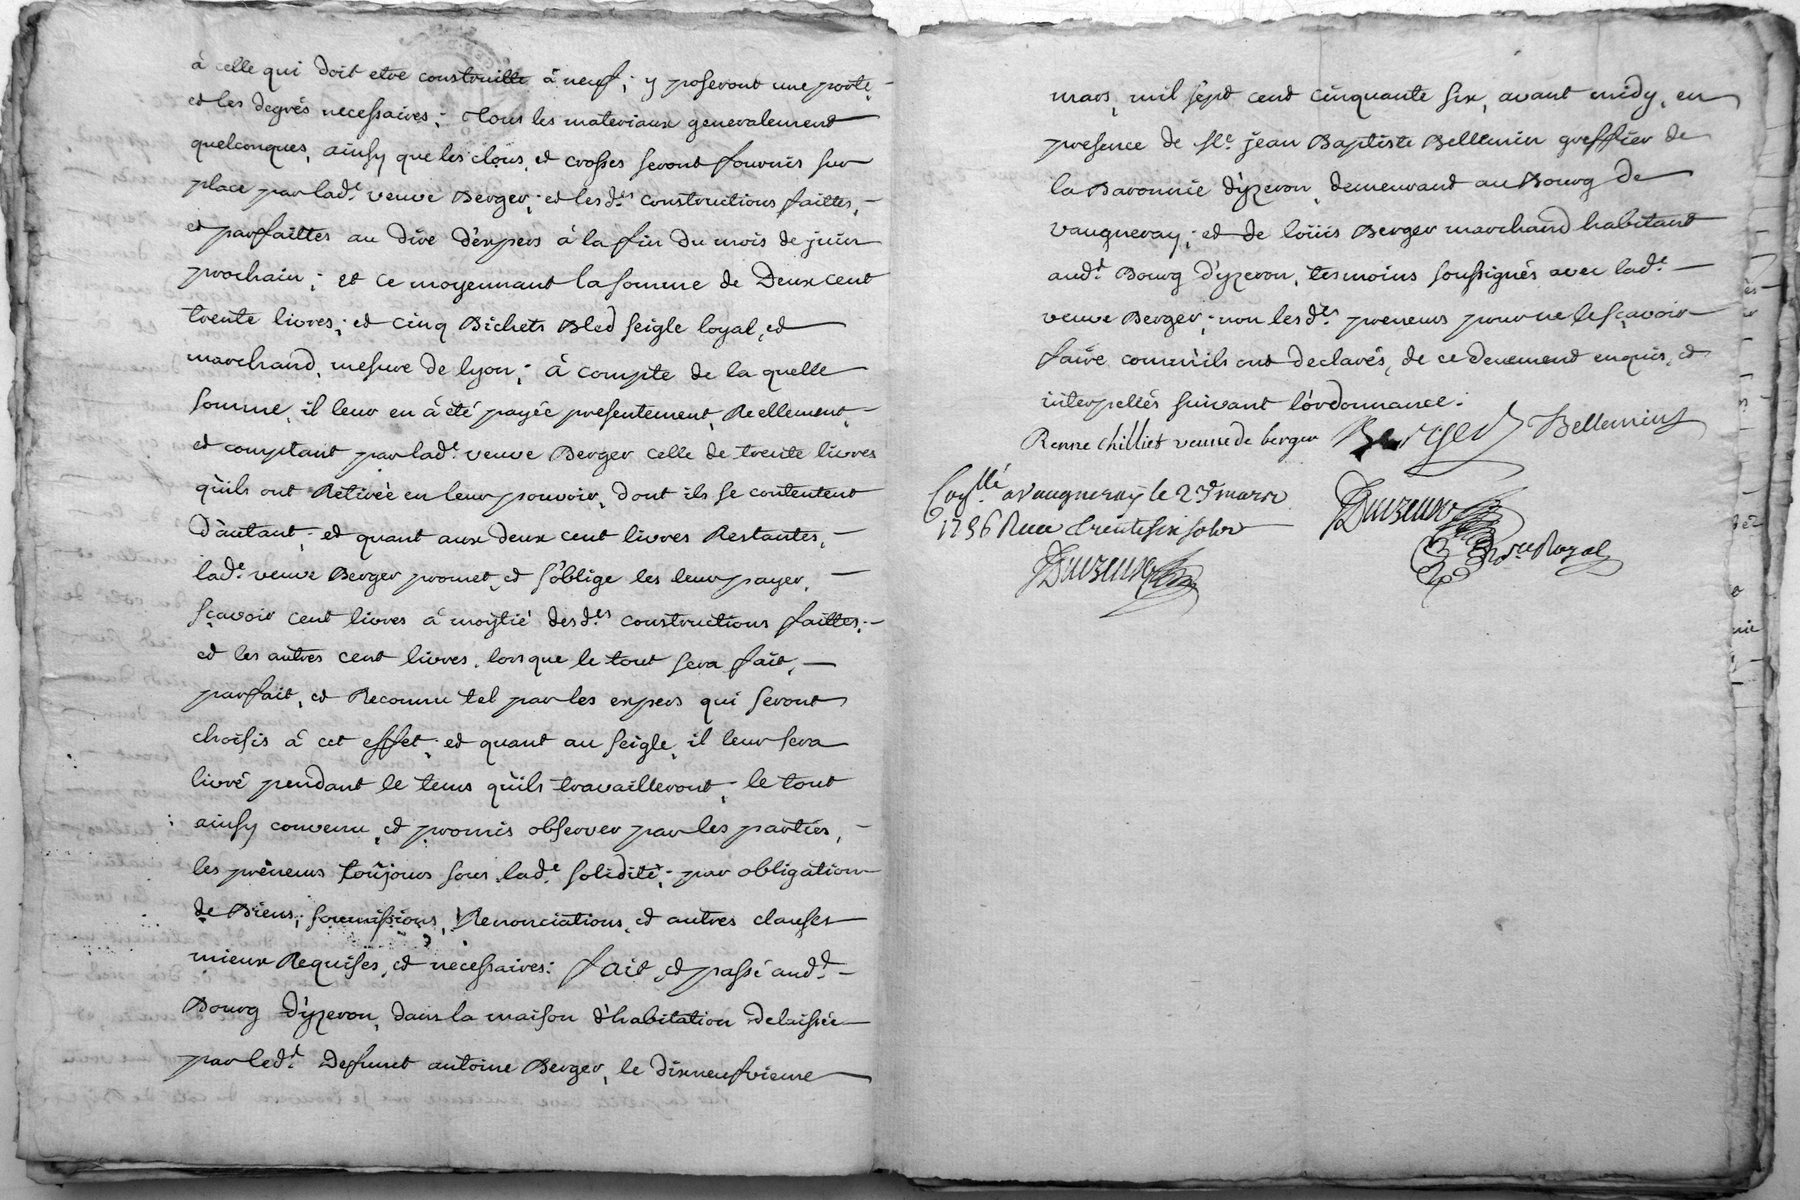 à celle qui doit etre construitte à neuf; y poseront une porte,
et les degrés necessaires; Tous les materiaux generalement
quelconques, ainsy que les clous, et crosses seront fournis sur
place par lad.e veuve Berger; et lesd.es constructions faittes,
et parfaittes au dire d'expers à la fin du mois de juin
prochain; et ce moyennant la somme de Deux cent
trente livres; et cinq Bichets Bled seigle loyal, et
marchand, mesure de lyon; à compte de la quelle
somme, il leur en à été payée presentement, Reellement,
et comptant par lad.e veuve Berger celle de trente livres
qu'ils ont Retirée en leur pouvoir, dont ils se contentent
D'autant; et quant aux deux cent livres Restantes,
lad.e veuve Berger promet, et s'oblige les leur payer,
sçavoir cent livres à moytié desd.es constructions faittes;
et les autres cent livres, lorsque le tout sera fait,
parfait, et Reconnu tel par les expers qui seront
choisis à cet effet; et quant au seigle, il leur sera
livré pendant le tems qu'ils travailleront; le tout
ainsy convenu, et promis observer par les parties,
les preneurs toujours sous lad.e solidité; par obligation
de Biens, soumissions, Renonciations, et autres clauses
mieux Requises, et necessaires: fait, et passé aud.t
Bourg d'yzeron, dans la maison d'habitation delaissée
par led.t Defunct antoine Berger, le dixneufvieme
mars, mil sept cent cinquante six, avant midy, en
presence de sr. jean Baptiste Bellemin greffier de
la Baronnie d'yzeron, demeurant au Bourg de
vaugneray; et de loüis Berger marchand habitant
aud.t Bourg d'yzeron, tesmoins soussignés avec lad.e
veuve Berger; non lesd.es preneurs pour ne le sçavoir
faire comm'ils ont declarés, de ce deuement enquis, et
interpellés suivant l'ordonnance.
Renne chilliet veuve de berger Berger Bellemin
Con.llé a Vaugneray le 2.d mars
1756 Reçu trente six sols